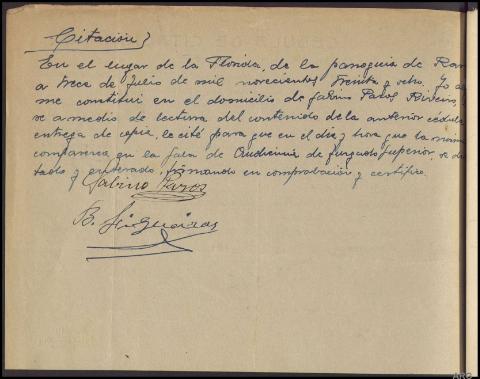 Citación }
En el lugar de la Florida, de la parroquia de
a trece de Julio de mil novecientos treinta y ocho. Yo el
me constitui en el domicilio de Gabino
se a medio de lectura del contenido de la anterior cédula
entrega de copia, le cité para que en el dia y hora que la misma
comparezca en la Sala de Audiencia de Juzgado Superior, se da
tado y enterado, firmando en comprobación y certifico.
Gabino
B.
ARG